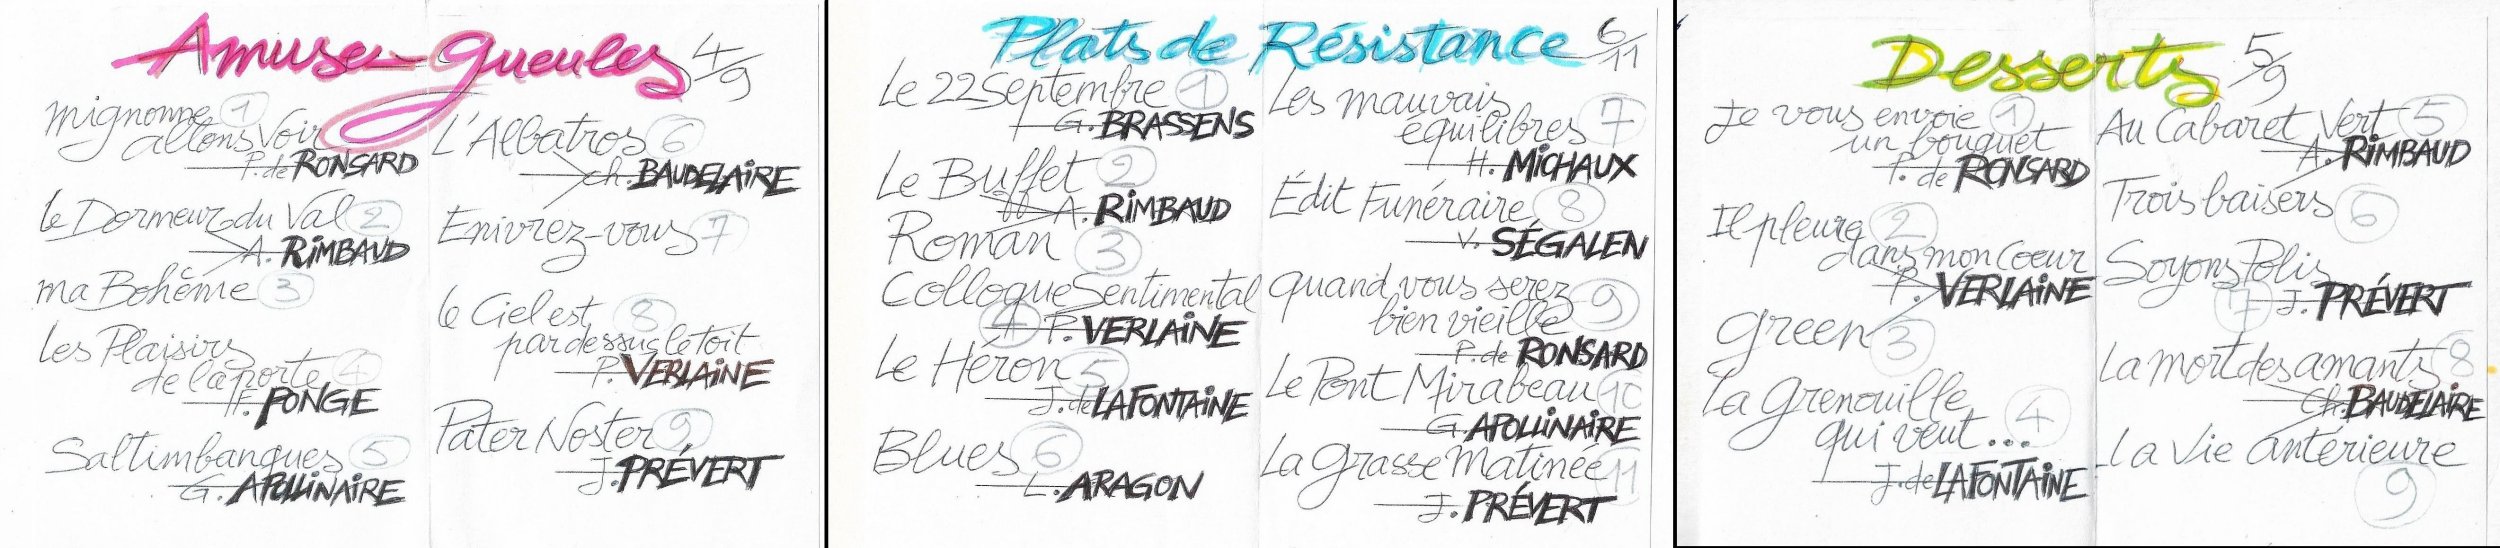 Amuses-gueules 4/9
mignonne 1
allons voir
P. de RONSARD
Le Dormeur du Val 2
A. RIMBAUD
ma Bohême 3
Les Plaisirs
de la porte 4
F. PONGE
Saltimbanques 5
G. APOLLINAIRE
L'Albatros 6
Ch. BAUDELAIRE
Enivrez-vous 7
le Ciel est 8
par dessus le toit
P. VERLAINE
Pater Noster 9
J. PRÉVERT
Plats de Résistance 6/11
Le 22 Septembre 1
G. BRASSENS
Le Buffet 2
A. RIMBAUD
Roman 3
Colloque Sentimental
4 P. VERLAINE
Le Héron 5
J. de LAFONTAINE
Blues 6
L. ARAGON
Les mauvais
équilibres 7
H. MICHAUX
Édit Funéraire 8
V. SÉGALEN
quand vous serez
bien vieille 9
P. de RONSARD
Le Pont Mirabeau 10
G. APOLLINAIRE
La Grasse Matinée 11
J. PRÉVERT
Desserts 5/9
Je vous envoie 1
un bouquet
P. de RONSARD
Il pleure 2
dans mon Coeur
P. VERLAINE
green 3
La Grenouille
qui veut... 4
J. de LAFONTAINE
Au Cabaret Vert 5
A. RIMBAUD
Trois baisers 6
Soyons Polis
7 J. PRÉVERT
La mort des amants 8
Ch. BAUDELAIRE
La Vie antérieure
9